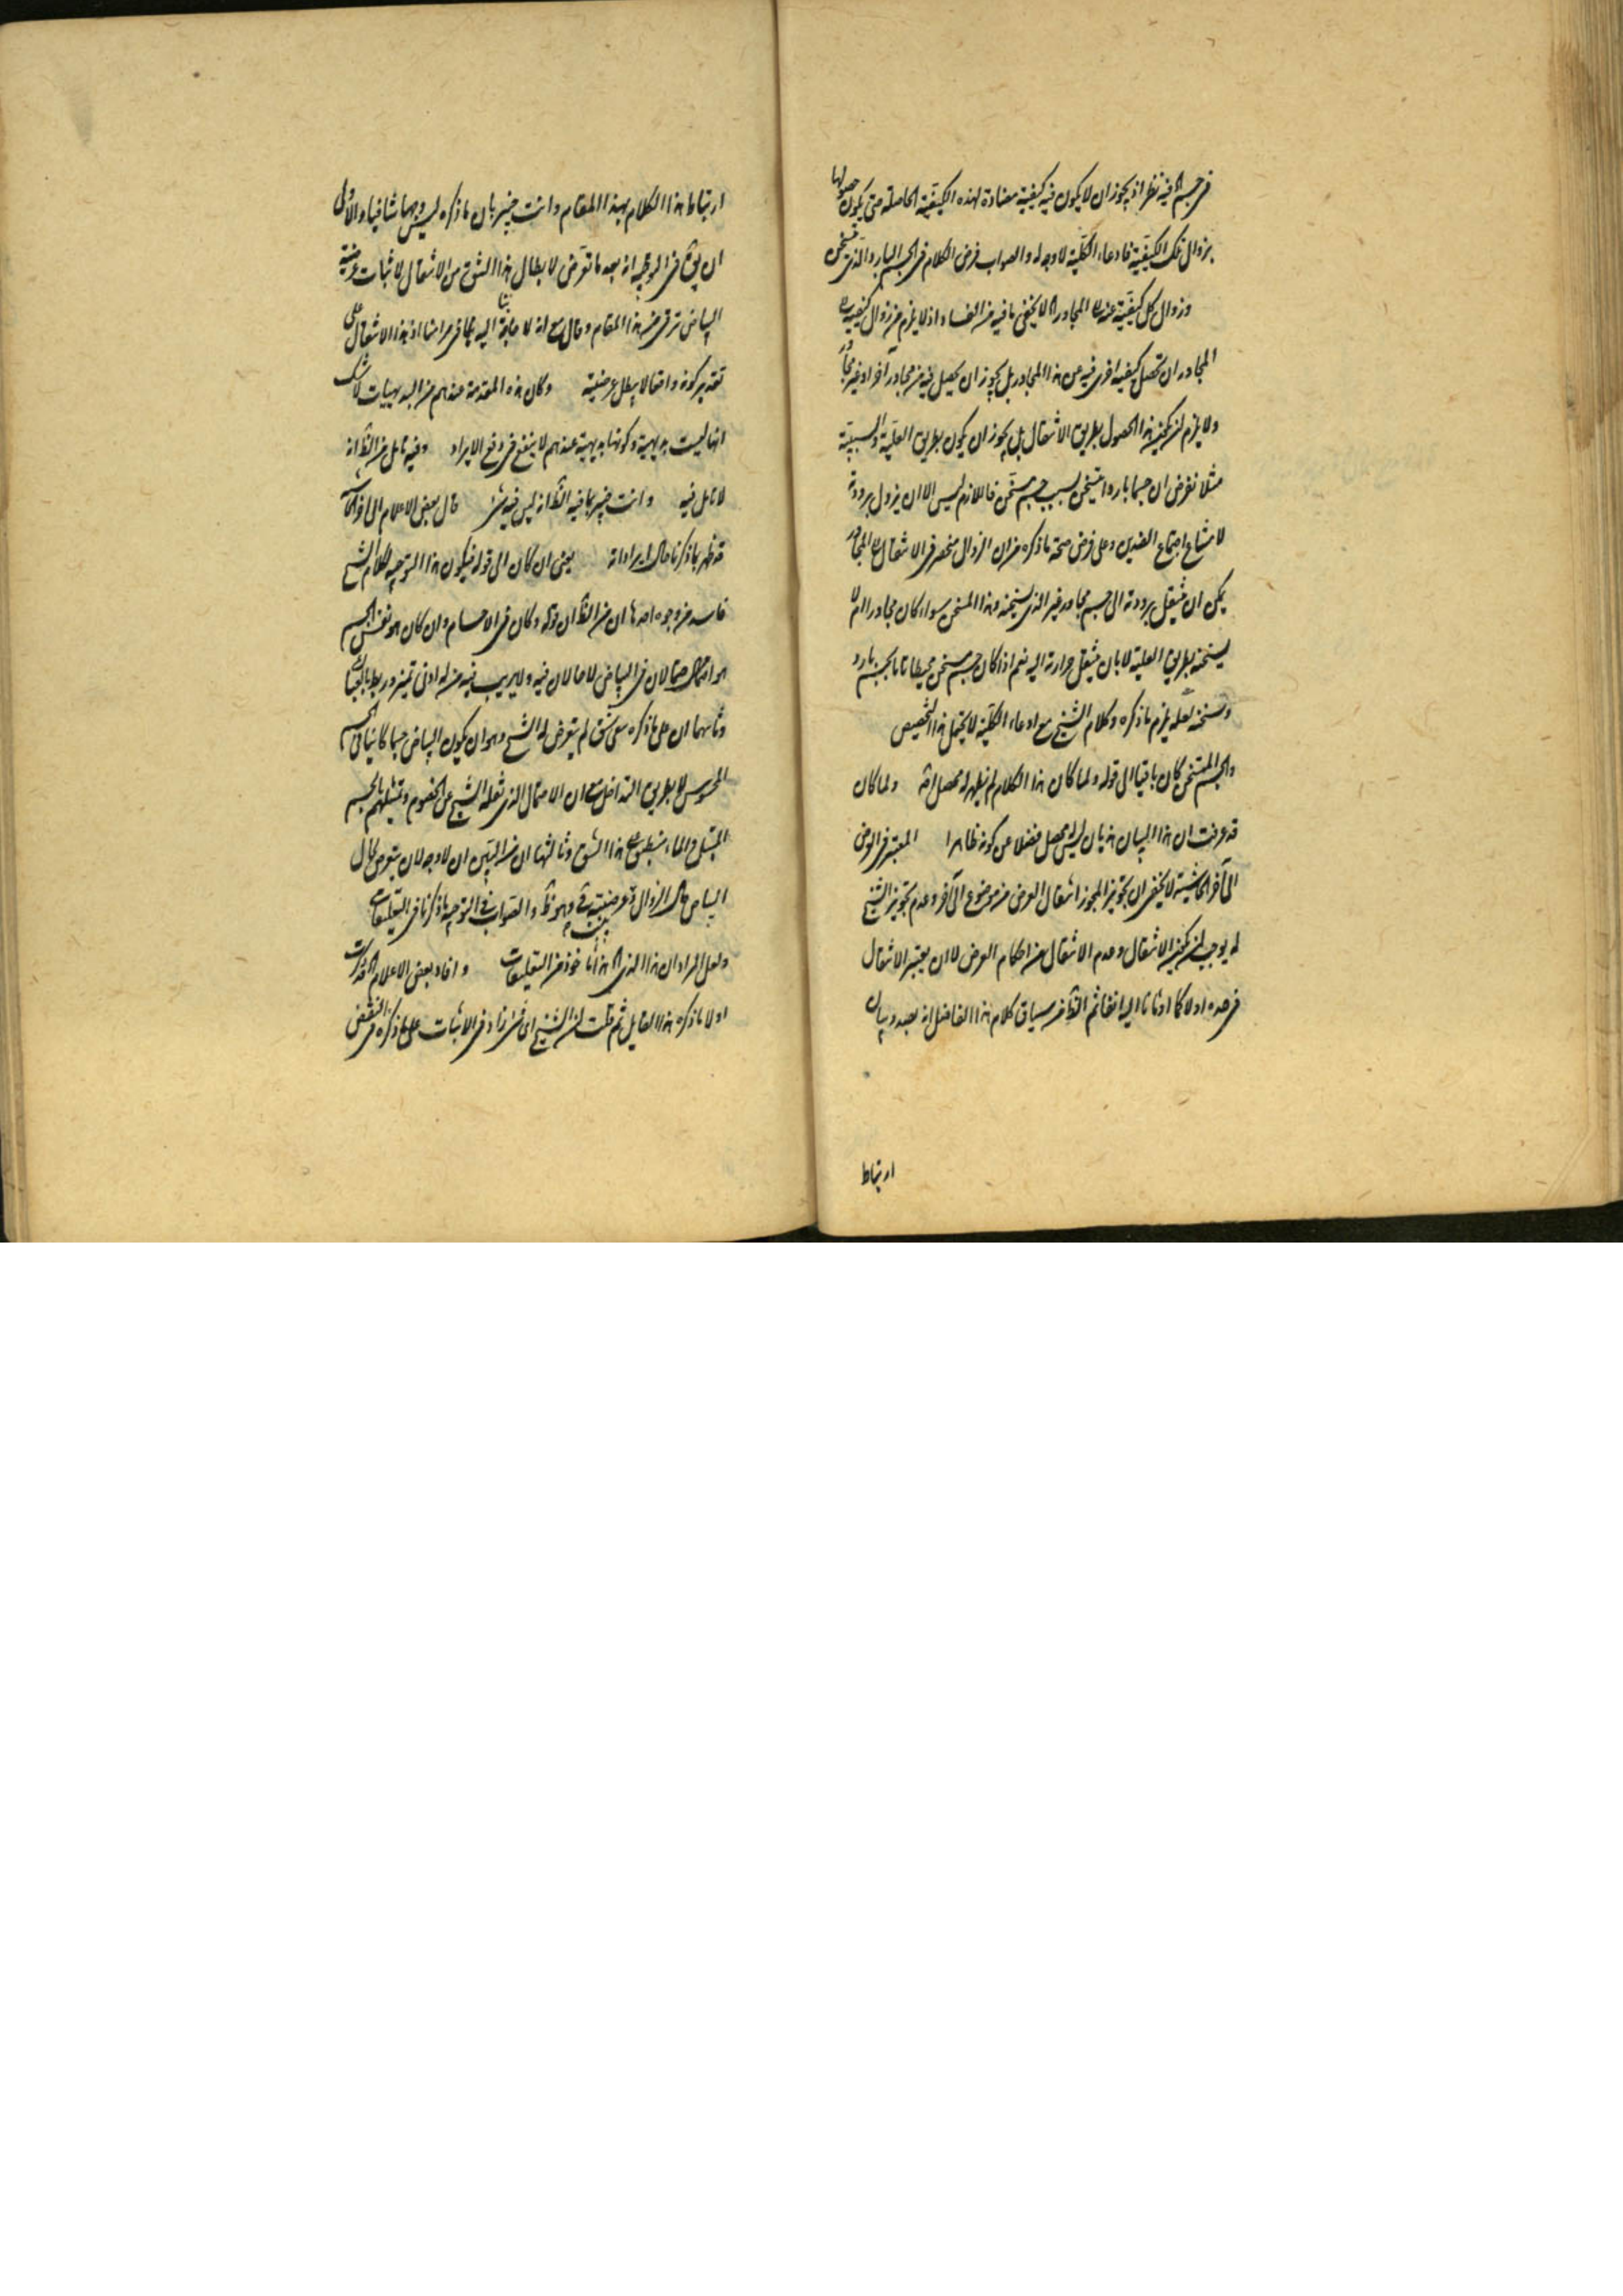 في جسم الخ فيه نظر اذ يجوز ان لا يكون فيه كيفية مضادة لهذه الكيفية الحاصلة حتى يكون حصولها
بزوال تلك الكيفية فادعاء الكلية لا وجه له والصواب فرض الكلام في الجسم البارد الذي تسخن
وزوال كل كيفية عنه الى المجاور الخ لا يخفى ما فيه من الفساد اذ لا يلزم من زوال كيفية الى
المجاور ان تحصل كيفية اخرى فيه من هذا المجاور بل يجوز ان يحصل فيه من مجاور آخر او غير مجاور
ولا يلزم ان يكون هذا الحصول بطريق الانتقال بل يجوز ان يكون بطريق العلية والسببية
مثلا نفرض ان جسما باردا تسخن بسبب جسم مسخن فاللازم ليس الا ان يزول برودته
لامتناع اجتماع الضدين وعلى فرض صحة ما ذكره من ان الزوال منحصر في الانتقال الى المجاور
يمكن ان ينتقل برودته الى جسم مجاور غير الذي يسخنه وهذا المسخن سواء كان مجاورا ام لا
يسخنه بطريق العلية لا بان ينتقل حرارته اليه نعم اذا كان جسم مسخن محيطا تاما بجسم بارد
وسخنه لعله يلزم ما ذكره وكلام الشيخ مع ادعاء الكلية لا يحتمل هذا التخصيص
والجسم المتسخن كان باقيا الى قوله ولما كان هذا الكلام لم يظهر له محصل الخ ولما كان
قد عرفت ان هذا البيان هذيان ليس له محصل فضلا عن كونه ظاهرا المعتبر في العرض
الى آخر الحاشية لا يخفى ان تجويز المجوز انتقال العرض من موضوع الى آخر وعدم تجويز الشيخ
له يوجب ان يكون الانتقال وعدم الانتقال من احكام العرض لا ان يعتبر الانتقال
في حده اولا كما اومأنا اليه آنفا ثم الظ من سياق كلام هذا الفاضل انه بصدد بيان
ارتباط
ارتباط هذا الكلام بهذا المقام وانت خبير بان ما ذكره ليس وجها شافيا والاولى
ان يق في التوجيه انه بعد ما تعرض لابطال هذا الشق من الانتقال لاثبات عرضية
البياض ترقى من هذا المقام وقال مع انه لا حاجة لنا اليه بما في مرامنا اذ هذا الانتقال على
تقدير كونه واقعا لا يبطل عرضيته وكان هذه المقدمة عندهم من البديهيات لا شك
انها ليست بديهية وكونها بديهية عندهم لا ينفع في دفع الايراد وفيه تامل من الظ انه
لا تامل فيه وانت خبير بما فيه الظ انه ليس فيه شئ قال بعض الاعلام الى آخر الحاشية
قد ظهر بما ذكرنا حال ايراداته يعني ان كان الى قوله فيكون هذا التوجيه لكلام الشيخ
فاسد من وجوه احدها ان من الظ ان قوله وكان في الاجسام وان كان هو نفس الجسم
هو احتمالان في البياض لا حالان فيه ولا يريب فيه من له ادنى تميز وربط بالعبارات
وثانيهما ان على ما ذكره بقي شق لم يتعرض له الشيخ وهو ان يكون البياض جسما كائنا في الجسم
المحسوس لا بطريق التداخل مع ان الاحتمال الذي نقله الشيخ عن الخصوم وتمثيلهم بالجسم
المبتل والماء ينطبق على هذا الشق وثالثها ان من البين ان لا وجه لان يتعرض لحال
البياض حال الزوال وعرضيته ح وهو ظ والصواب في التوجيه ما ذكرنا في التعليقات
ولعل المراد ان هذا الذي الخ هذا مأخوذ من التعليقات وافاد بعض الاعلام الخ قد ذكرت
اولا ما ذكره هذا القايل ثم قلت ان الشيخ اى شئ زاد في الاثبات على ما ذكره في النقض